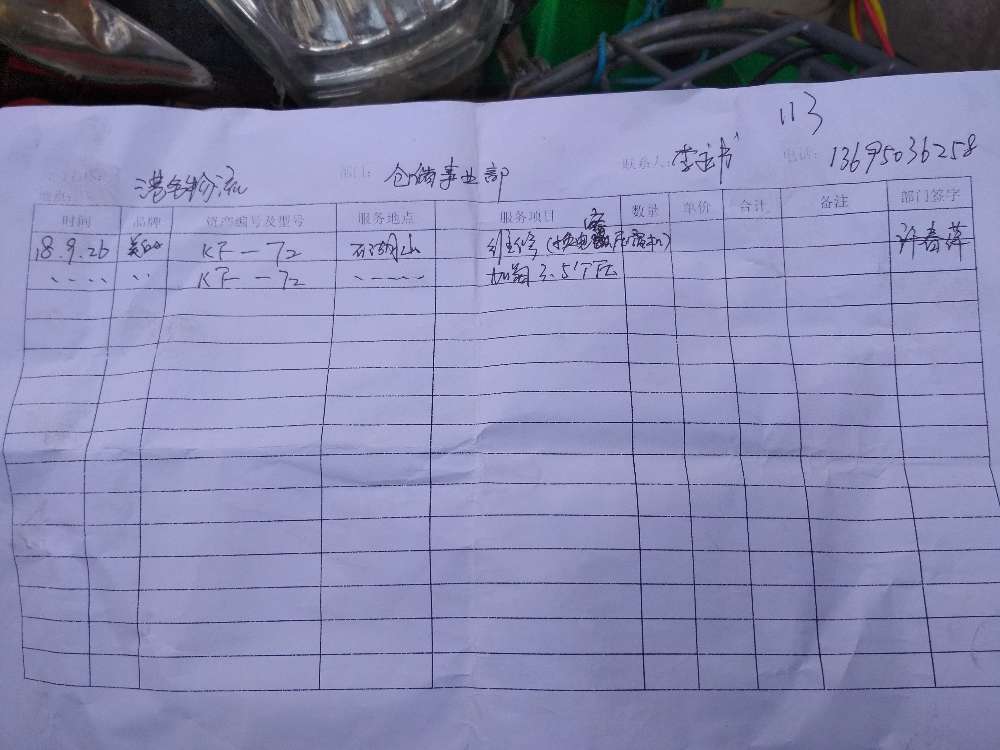 113
部门: 仓储事业部 联系人: 李 书 电话: 13695036258
港 物流
时间 品牌 资产编号及型号 服务地点 服务项目 数量 单价 合计 备注 部门签字
18.9.26 美的 KF—72 石湖山 维修(换电容 压缩机) 许春萍
KF—72 加氟 3.5